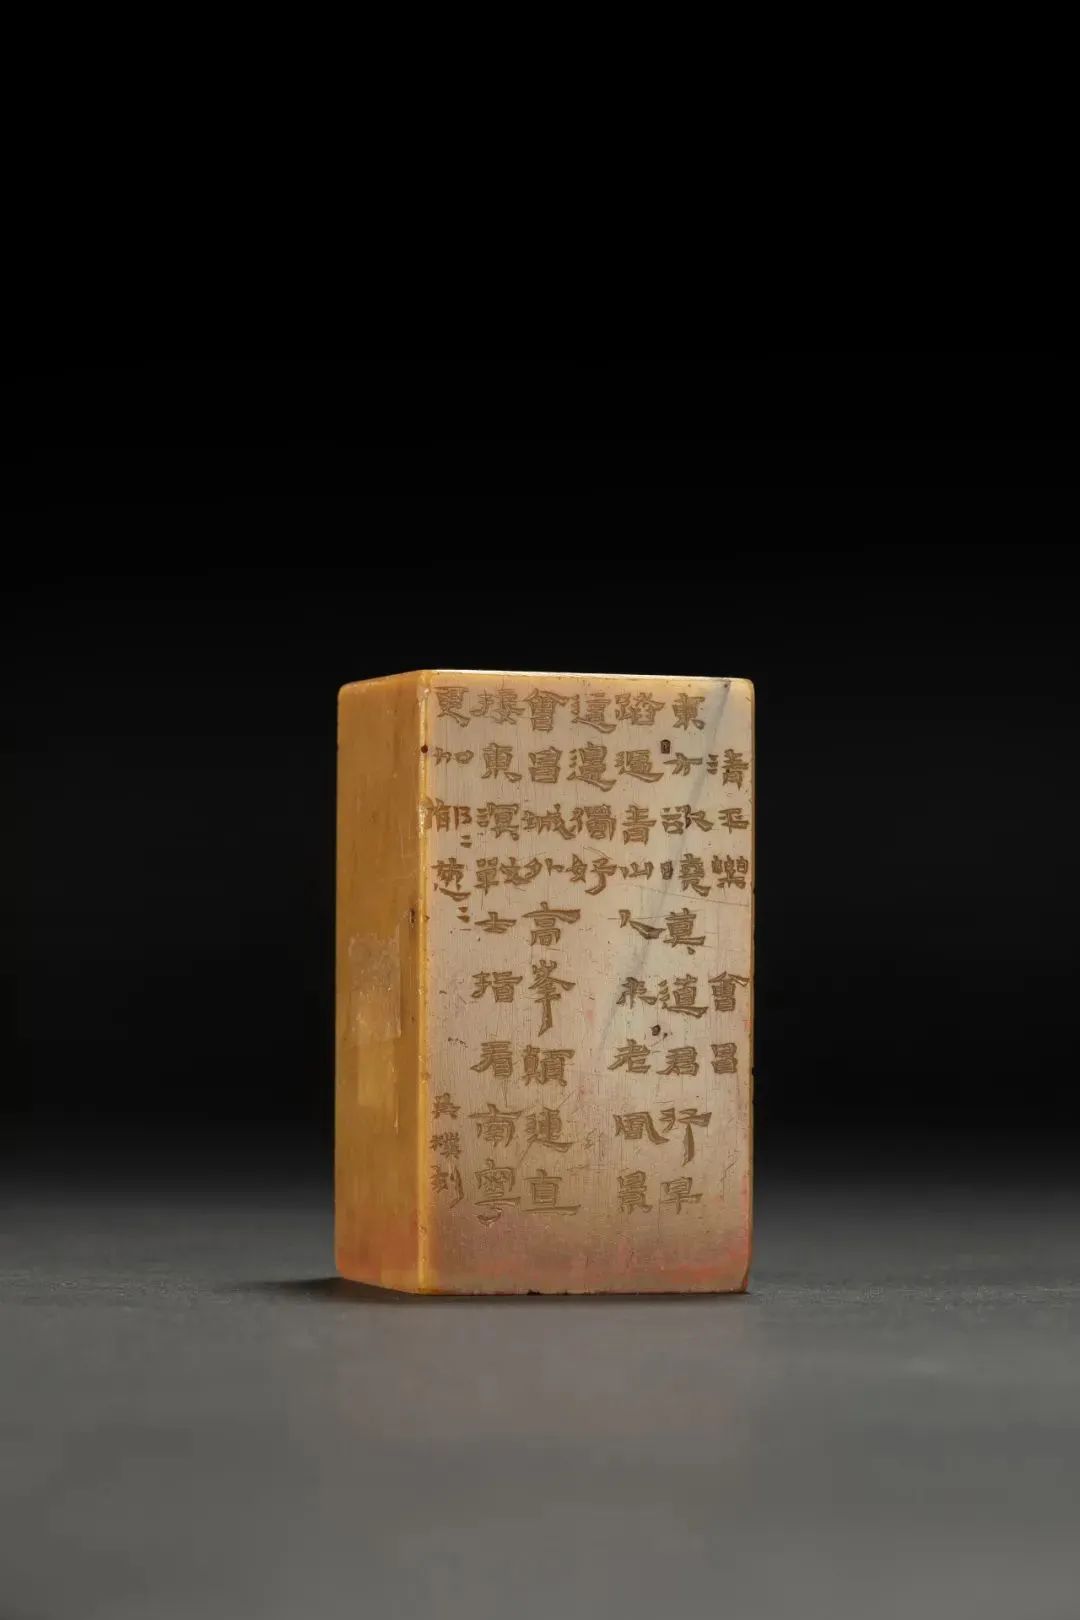 清平樂 會昌
東方欲曉莫道君行早
踏遍青山人未老風景
這邊獨好
會昌城外高峯顛連直
接東溟戰士指看南粵
更加郁〻蔥〻 吳樸刻